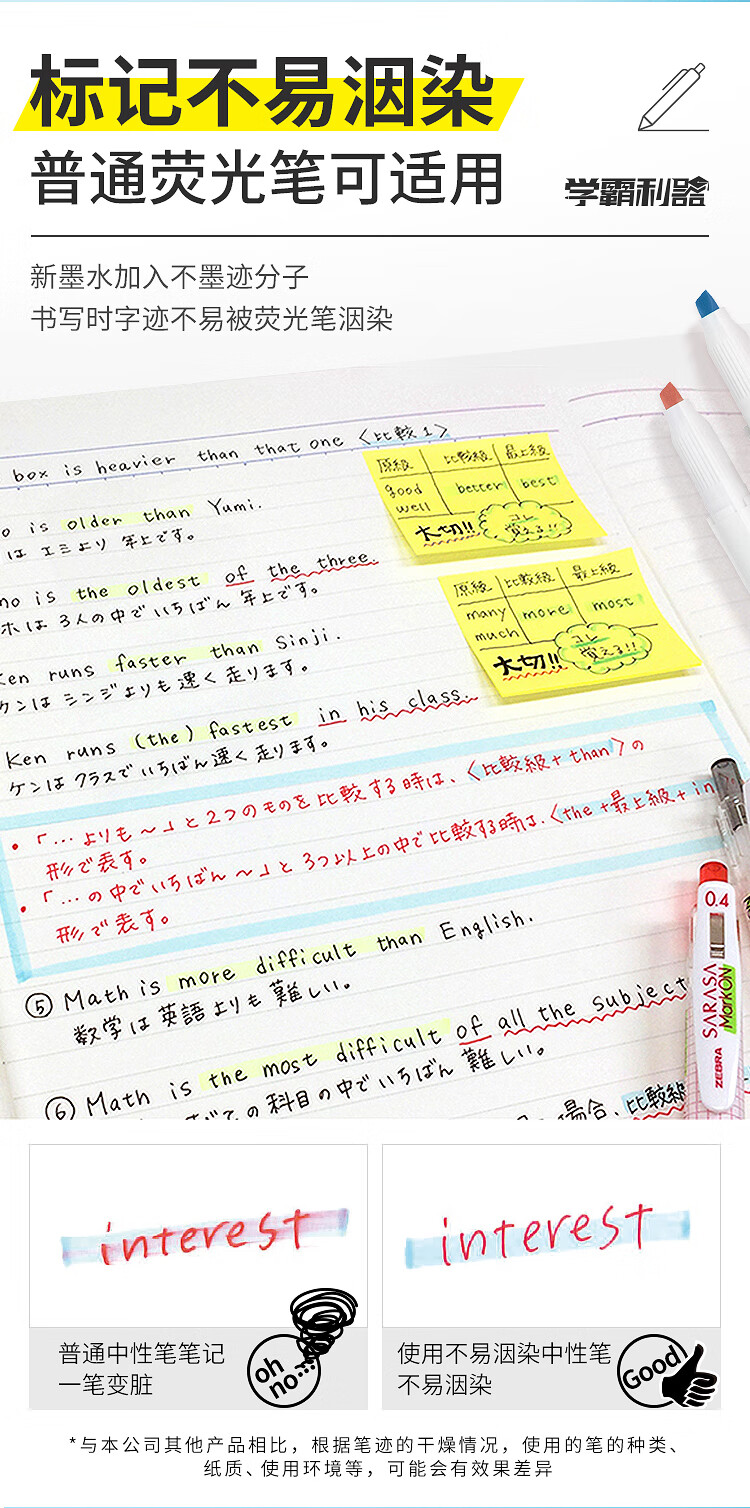 标记不易洇染
普通荧光笔可适用
学霸利器
新墨水加入不墨迹分子
书写时字迹不易被荧光笔洇染
box is heavier than that one 〈比較1〉
o is older than Yumi.
は エミより 年上です。
no is the oldest of the three.
ホは 3人の中で いちばん 年上です。
Ken runs faster than Sinji.
ケンは シンジよりも 速く 走ります。
Ken runs (the) fastest in his class.
ケンは クラスで いちばん 速く 走ります。
原級 比較級 最上級
good better best
well
大切!! コレ
覚える!!
原級 比較級 最上級
many more most
much
大切!! コレ
覚える!!
・「…よりも～」と2つのものを比較する時は、〈比較級+than〉の
形で表す。
・「…の中でいちばん～」と3つ以上の中で比較する時は、〈the+最上級+in
形で表す。
⑤ Math is more difficult than English.
数学は英語よりも難しい。
⑥ Math is the most difficult of all the subject
べての科目の中でいちばん難しい。
場合、比較級
0.4
ZEBRA SARASA
MarkON
interest
普通中性笔笔记
一笔变脏
oh
no...
interest
使用不易洇染中性笔
不易洇染
Good!
*与本公司其他产品相比，根据笔迹的干燥情况，使用的笔的种类、
纸质、使用环境等，可能会有效果差异